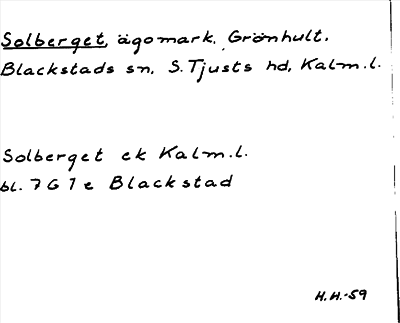 Solberget, ägomark. Grönhult.
Blackstads sn. S. Tjusts hd, Kalm.l.
Solberget ek Kalm.l.
bl. 7 G 1 e Blackstad
H.H.-59